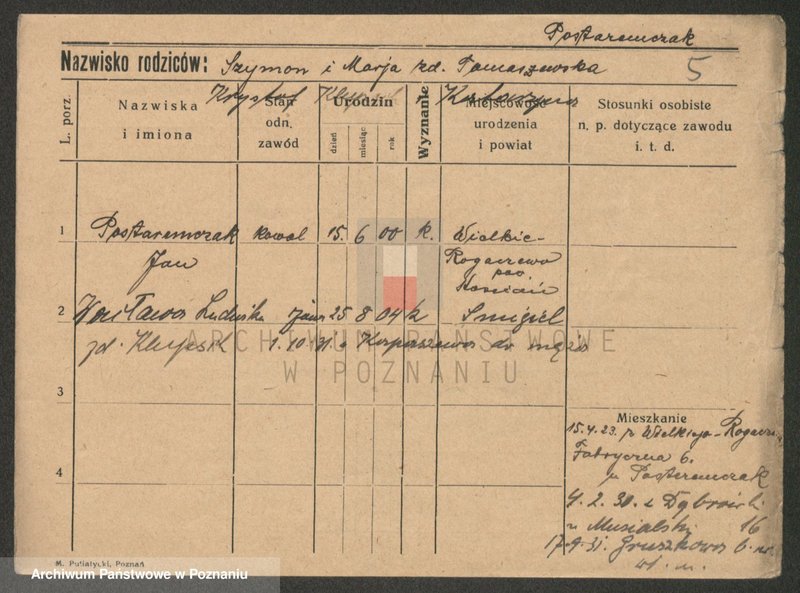 Postaremczak
Nazwisko rodziców: Szymon i Marja zd. Tomaszewska
5
Krystof Klupsik Katarzyna
L. porz.
Nazwiska i imiona
Stan odn. zawód
Urodzin
dzień miesiąc rok
Wyznanie
Miejscowość urodzenia i powiat
Stosunki osobiste n. p. dotyczące zawodu i. t. d.
1 Postaremczak kowal 15. 6 00 k. Wielkie-
Jan Rogaczewo
pow.
Kościań
2 Ludwika żona 25 8 04 k Śmigiel
zd. Klupsik 1. 10 31 z Karpaszewos do męża
3
Mieszkanie
15.4.23. p Wielkiego-Rogaczewa
Fabryczna 6.
u Postaremczak
4
4.2.30. z Dąbrowsk.
u Musialski 16
17.9.31. Gruszkowa 6. nr.
wł. m.
M. Putiatycki, Poznań
ARCHIWUM PAŃSTWOWE
W POZNANIU
Archiwum Państwowe w Poznaniu